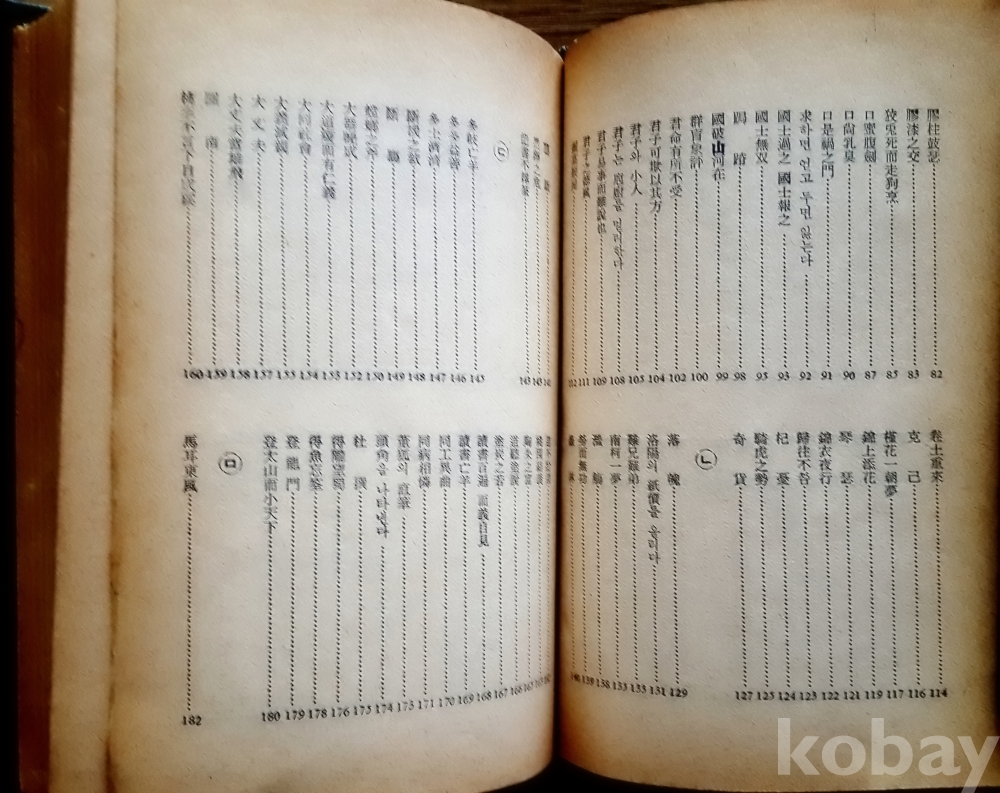 膠柱鼓瑟 82
膠漆之交 83
狡兎死而走狗烹 85
口蜜腹劍 87
口尙乳臭 90
口是禍之門 91
求하면 얻고 두면 잃는다 92
國士遇之 國士報之 93
國士無双 95
跼蹐 98
國破山河在 99
群盲象評 100
君命有所不受 102
君子可欺以其方 104
君子와 小人 105
君子는 庖廚를 멀리한다 108
君子易事而難說也 109
君子之德風 111
112
捲土重來 114
克己 116
槿花一朝夢 117
錦上添花 119
琴瑟 121
錦衣夜行 122
歸往不咎 123
杞憂 124
騎虎之勢 125
奇貨 127
㉡
落魄 129
洛陽의 紙價를 올리다 131
難兄難弟 133
南柯一夢 135
濫觴 138
勞而無功 139
140
141
143
143
㉢
多岐亡羊 145
多多益善 146
多士濟濟 147
斷機之敎 148
斷腸 149
螳螂之斧 150
大器晩成 152
大道廢而有仁義 153
大同社會 154
大義滅親 155
大丈夫 157
大丈夫當雄飛 158
圖南 159
桃李不言下自成蹊 160
162
163
陶朱之富 165
道聽塗說 166
塗炭之苦 167
讀書百遍 而義自見 168
讀書亡羊 169
同工異曲 170
同病相憐 171
董狐의 直筆 173
頭角을 나타낸다 174
杜撰 175
得隴望蜀 176
得魚忘筌 178
登龍門 179
登太山而小天下 180
㉤
馬耳東風 182
kobay